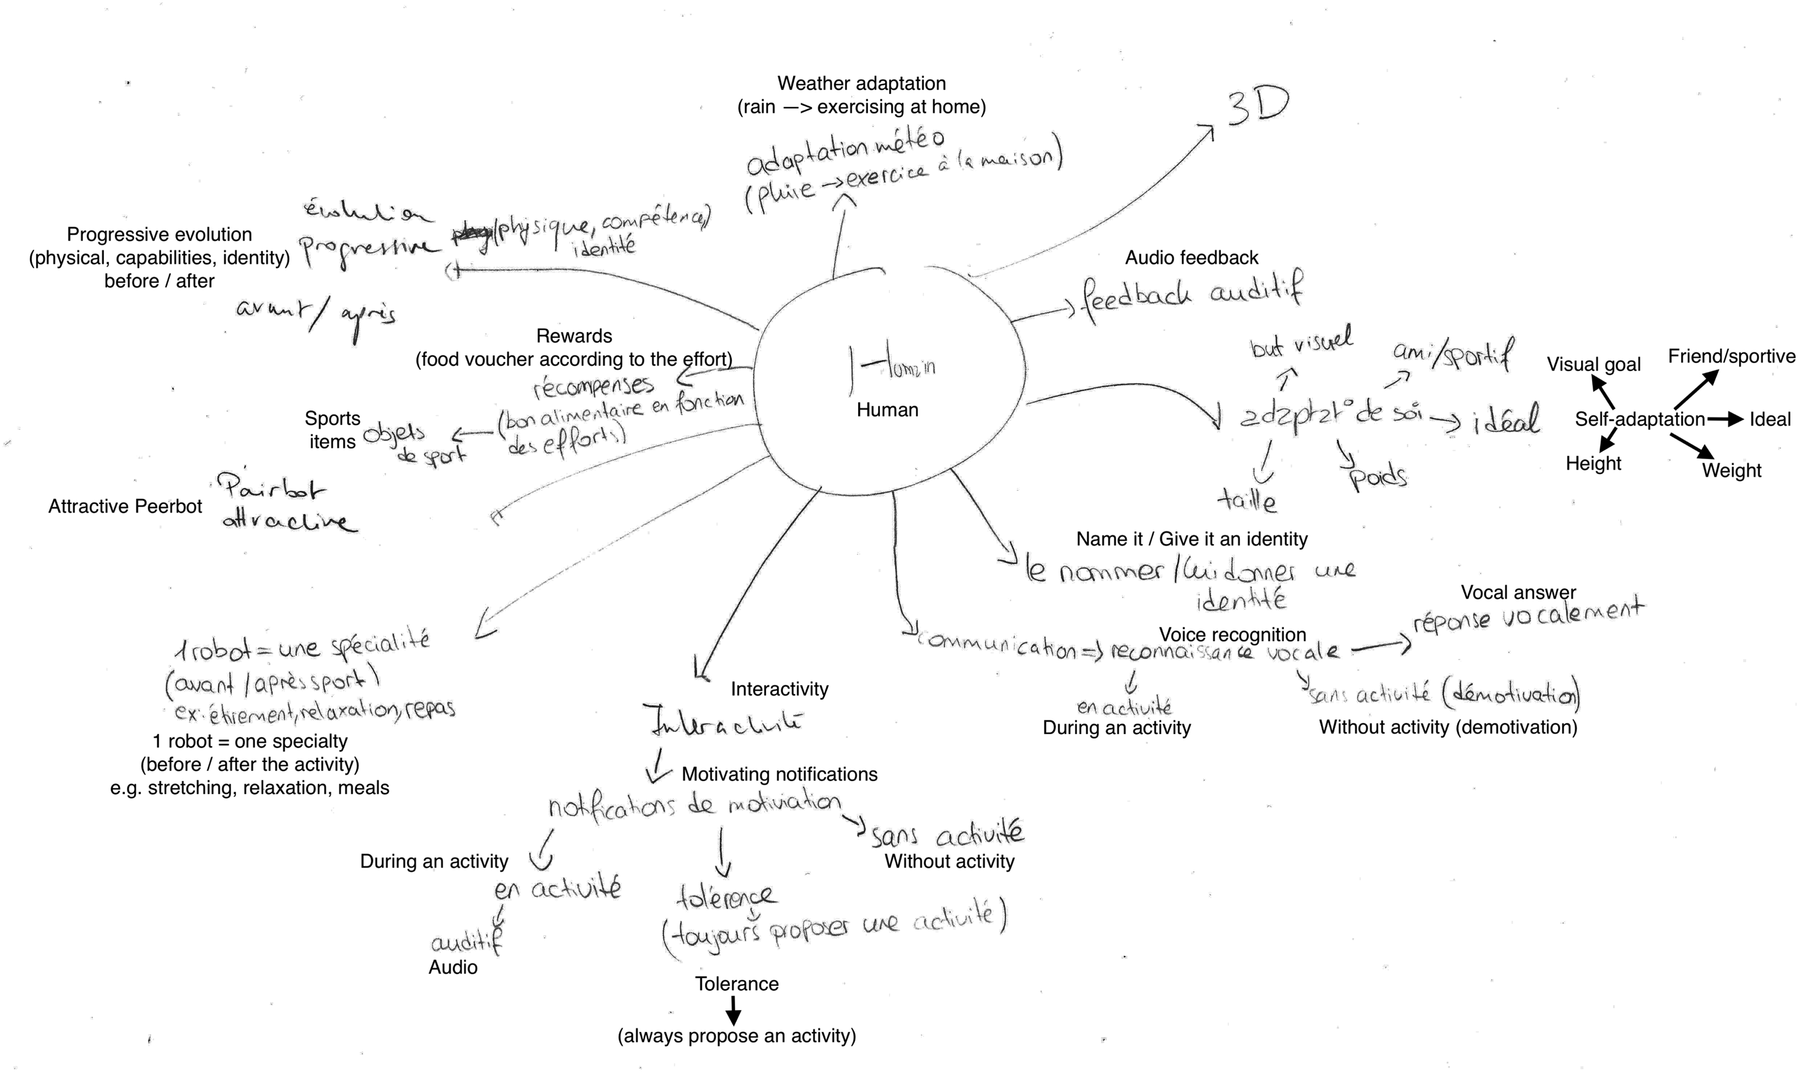 Weather adaptation
(rain —> exercising at home)
adaptation météo
(pluie → exercice à la maison)
3D
évolution
progressive (physique, compétence,)
identité
avant / après
Progressive evolution
(physical, capabilities, identity)
before / after
Audio feedback
feedback auditif
Rewards
(food voucher according to the effort)
récompenses
(bon alimentaire en fonction
des efforts)
Sports
items
objets
de sport
Human
Human
but visuel
ami/sportif
adaptat° de soi → idéal
taille
poids
Visual goal
Friend/sportive
Self-adaptation
Ideal
Height
Weight
Attractive Peerbot
Pairbot
attractive
Name it / Give it an identity
le nommer / lui donner une
identité
Vocal answer
réponse vocalement
Voice recognition
communication => reconnaissance vocale
en activité
During an activity
sans activité (démotivation)
Without activity (demotivation)
1 robot = une spécialité
(avant / après sport)
ex: étirement, relaxation, repas
1 robot = one specialty
(before / after the activity)
e.g. stretching, relaxation, meals
Interactivity
Interactivité
Motivating notifications
notifications de motiviation
sans activité
Without activity
During an activity
en activité
auditif
Audio
tolérence
(toujours proposer une activité)
Tolerance
(always propose an activity)